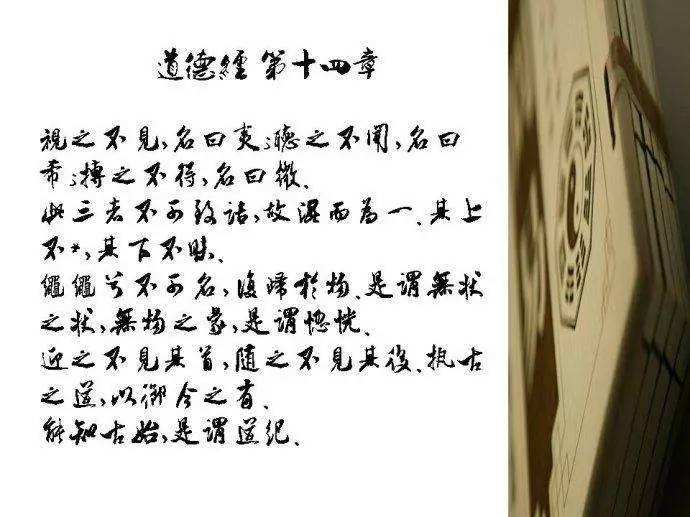 道德經 第十四章
視之不見,名曰夷;聽之不聞,名曰
希;搏之不得,名曰微.
此三者不可致詰,故混而為一.其上
不*,其下不昧.
繩繩兮不可名,復歸於物.是謂無狀
之狀,無物之象,是謂惚恍.
迎之不見其首,隨之不見其後.執古
之道,以御今之有.
能知古始,是謂道紀.